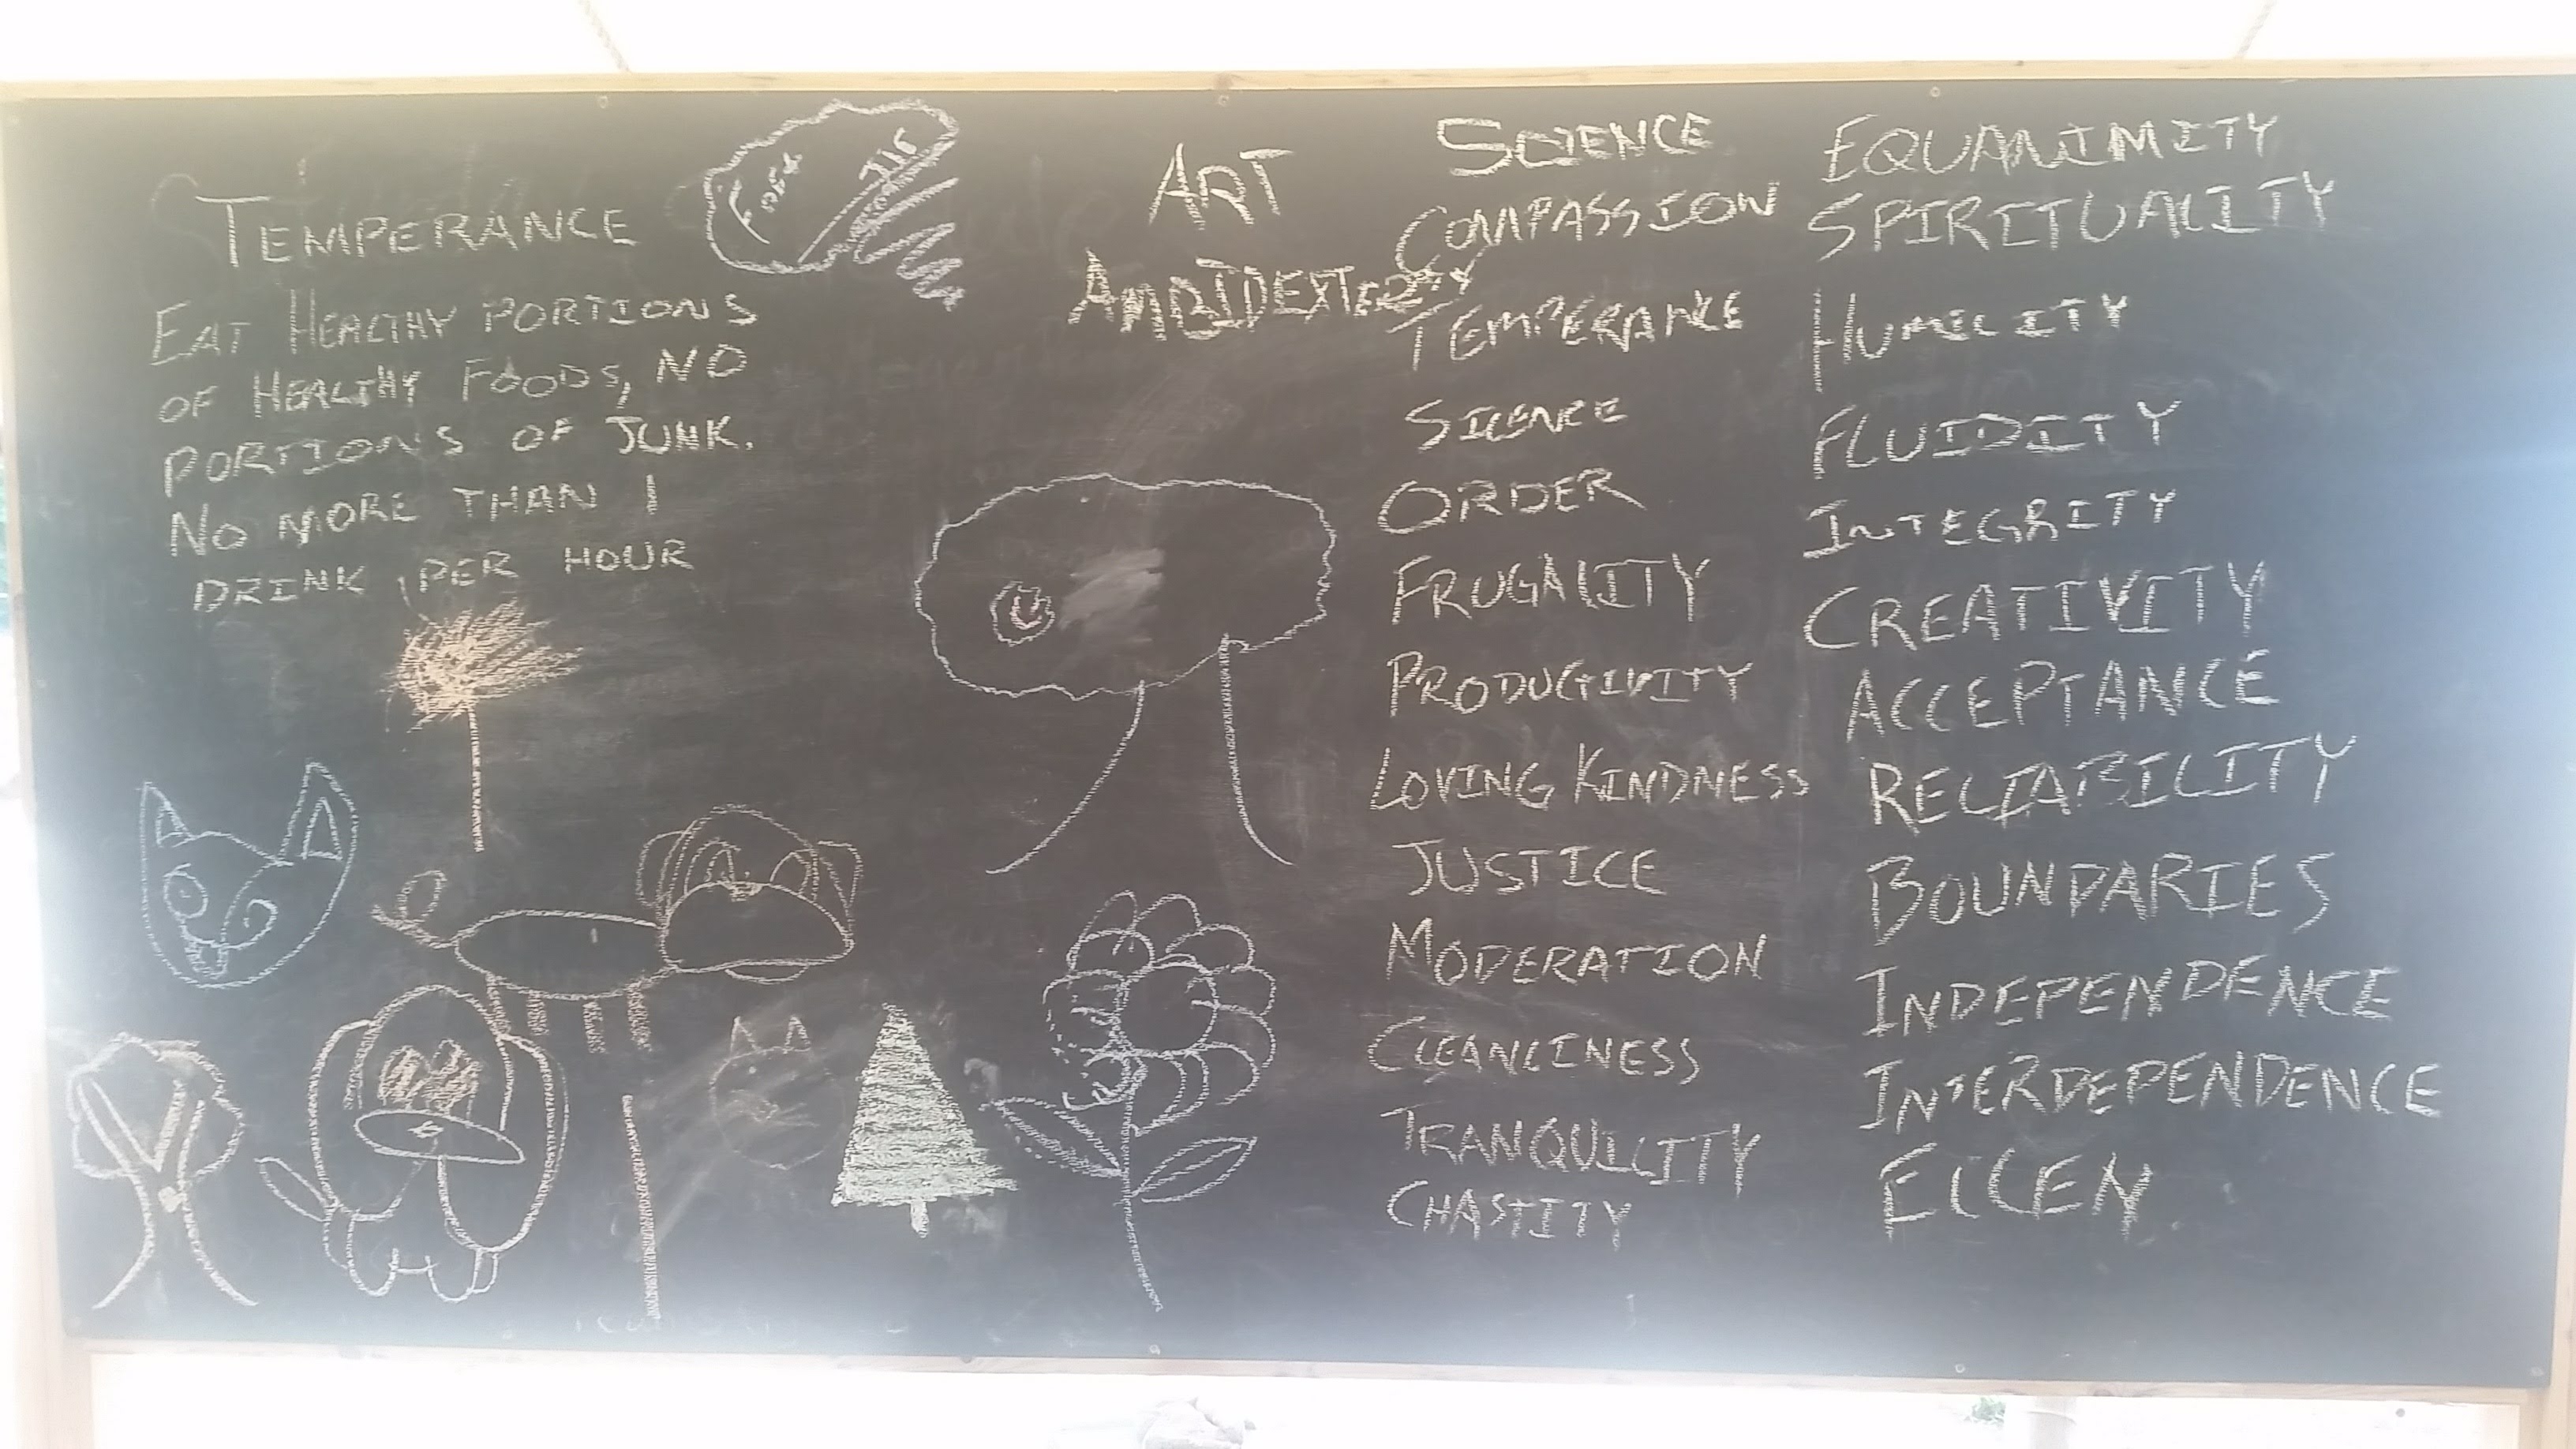 TEMPERANCE
EAT HEALTHY PORTIONS
OF HEALTHY FOODS, NO
PORTIONS OF JUNK.
NO MORE THAN 1
DRINK PER HOUR
ART
AMBIDEXTERITY
SCIENCE
COMPASSION
TEMPERANCE
SILENCE
ORDER
FRUGALITY
PRODUCTIVITY
LOVING KINDNESS
JUSTICE
MODERATION
CLEANLINESS
TRANQUILITY
CHASTITY
EQUANIMITY
SPIRITUALITY
HUMILITY
FLUIDITY
INTEGRITY
CREATIVITY
ACCEPTANCE
RELIABILITY
BOUNDARIES
INDEPENDENCE
INTERDEPENDENCE